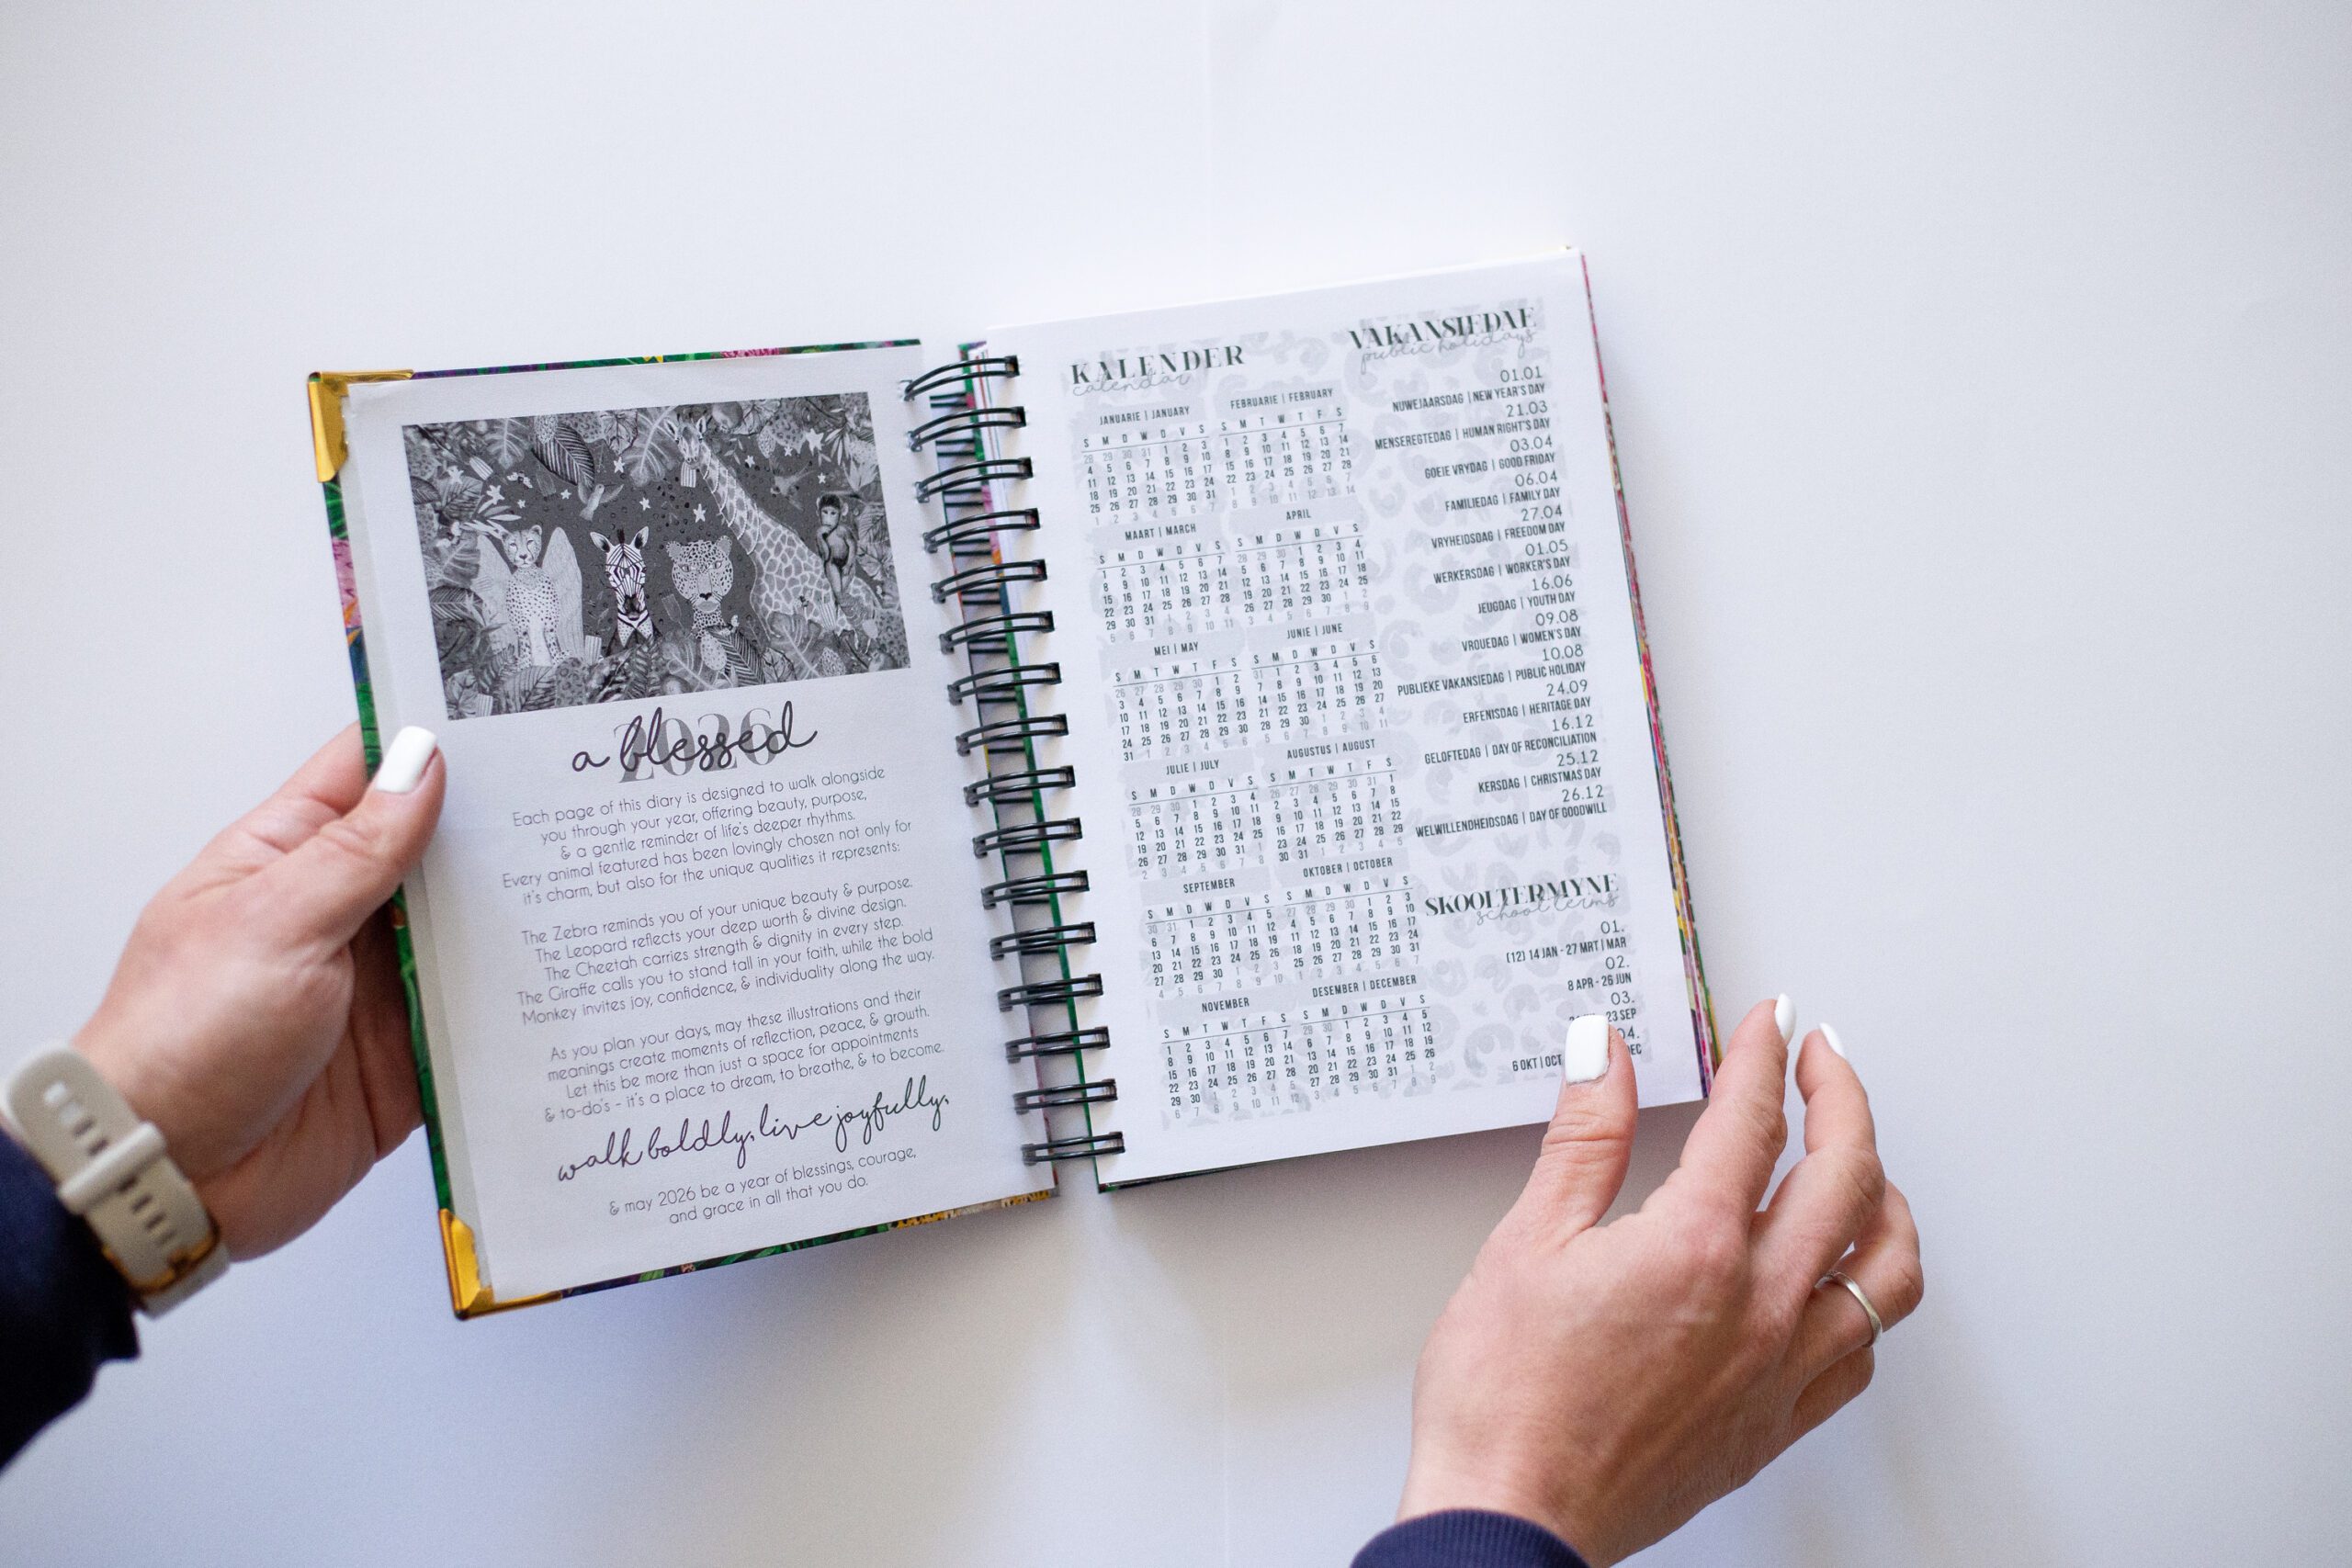 2026
a blessed
Each page of this diary is designed to walk alongside
you through your year, offering beauty, purpose,
& a gentle reminder of life's deeper rhythms.
Every animal featured has been lovingly chosen not only for
it's charm, but also for the unique qualities it represents:
The Zebra reminds you of your unique beauty & purpose.
The Leopard reflects your deep worth & divine design.
The Cheetah carries strength & dignity in every step.
The Giraffe calls you to stand tall in your faith, while the bold
Monkey invites joy, confidence, & individuality along the way.
As you plan your days, may these illustrations and their
meanings create moments of reflection, peace, & growth.
Let this be more than just a space for appointments
& to-do's - it's a place to dream, to breathe, & to become.
walk boldly, live joyfully,
& may 2026 be a year of blessings, courage,
and grace in all that you do.
KALENDER
calendar
JANUARIE | JANUARY
S M D W D V S
28 29 30 31 1 2 3
4 5 6 7 8 9 10
11 12 13 14 15 16 17
18 19 20 21 22 23 24
25 26 27 28 29 30 31
1 2 3 4 5 6 7
FEBRUARIE | FEBRUARY
S M T W T F S
1 2 3 4 5 6 7
8 9 10 11 12 13 14
15 16 17 18 19 20 21
22 23 24 25 26 27 28
1 2 3 4 5 6 7
8 9 10 11 12 13 14
MAART | MARCH
S M D W D V S
1 2 3 4 5 6 7
8 9 10 11 12 13 14
15 16 17 18 19 20 21
22 23 24 25 26 27 28
29 30 31 1 2 3 4
5 6 7 8 9 10 11
APRIL
S M D W D V S
28 29 30 1 2 3 4
5 6 7 8 9 10 11
12 13 14 15 16 17 18
19 20 21 22 23 24 25
26 27 28 29 30 1 2
3 4 5 6 7 8 9
MEI | MAY
S M T W T F S
26 27 28 29 30 1 2
3 4 5 6 7 8 9
10 11 12 13 14 15 16
17 18 19 20 21 22 23
24 25 26 27 28 29 30
31 1 2 3 4 5 6
JUNIE | JUNE
S M D W D V S
31 1 2 3 4 5 6
7 8 9 10 11 12 13
14 15 16 17 18 19 20
21 22 23 24 25 26 27
28 29 30 1 2 3 4
5 6 7 8 9 10 11
JULIE | JULY
S M D W D V S
28 29 30 1 2 3 4
5 6 7 8 9 10 11
12 13 14 15 16 17 18
19 20 21 22 23 24 25
26 27 28 29 30 31 1
2 3 4 5 6 7 8
AUGUSTUS | AUGUST
S M T W T F S
26 27 28 29 30 31 1
2 3 4 5 6 7 8
9 10 11 12 13 14 15
16 17 18 19 20 21 22
23 24 25 26 27 28 29
30 31 1 2 3 4 5
SEPTEMBER
S M D W D V S
30 31 1 2 3 4 5
6 7 8 9 10 11 12
13 14 15 16 17 18 19
20 21 22 23 24 25 26
27 28 29 30 1 2 3
4 5 6 7 8 9 10
OKTOBER | OCTOBER
S M D W D V S
27 28 29 30 1 2 3
4 5 6 7 8 9 10
11 12 13 14 15 16 17
18 19 20 21 22 23 24
25 26 27 28 29 30 31
1 2 3 4 5 6 7
NOVEMBER
S M T W T F S
1 2 3 4 5 6 7
8 9 10 11 12 13 14
15 16 17 18 19 20 21
22 23 24 25 26 27 28
29 30 1 2 3 4 5
6 7 8 9 10 11 12
DESEMBER | DECEMBER
S M D W D V S
29 30 1 2 3 4 5
6 7 8 9 10 11 12
13 14 15 16 17 18 19
20 21 22 23 24 25 26
27 28 29 30 31 1 2
3 4 5 6 7 8 9
VAKANSIEDAE
public holidays
01.01
NUWEJAARSDAG | NEW YEAR'S DAY
21.03
MENSEREGTEDAG | HUMAN RIGHT'S DAY
03.04
GOEIE VRYDAG | GOOD FRIDAY
06.04
FAMILIEDAG | FAMILY DAY
27.04
VRYHEIDSDAG | FREEDOM DAY
01.05
WERKERSDAG | WORKER'S DAY
16.06
JEUGDAG | YOUTH DAY
09.08
VROUEDAG | WOMEN'S DAY
10.08
PUBLIEKE VAKANSIEDAG | PUBLIC HOLIDAY
24.09
ERFENISDAG | HERITAGE DAY
16.12
GELOFTEDAG | DAY OF RECONCILIATION
25.12
KERSDAG | CHRISTMAS DAY
26.12
WELWILLENDHEIDSDAG | DAY OF GOODWILL
SKOOLTERMYNE
school terms
01.
(12) 14 JAN - 27 MRT | MAR
02.
8 APR - 26 JUN
03.
23 SEP
04.
6 OKT | OCT